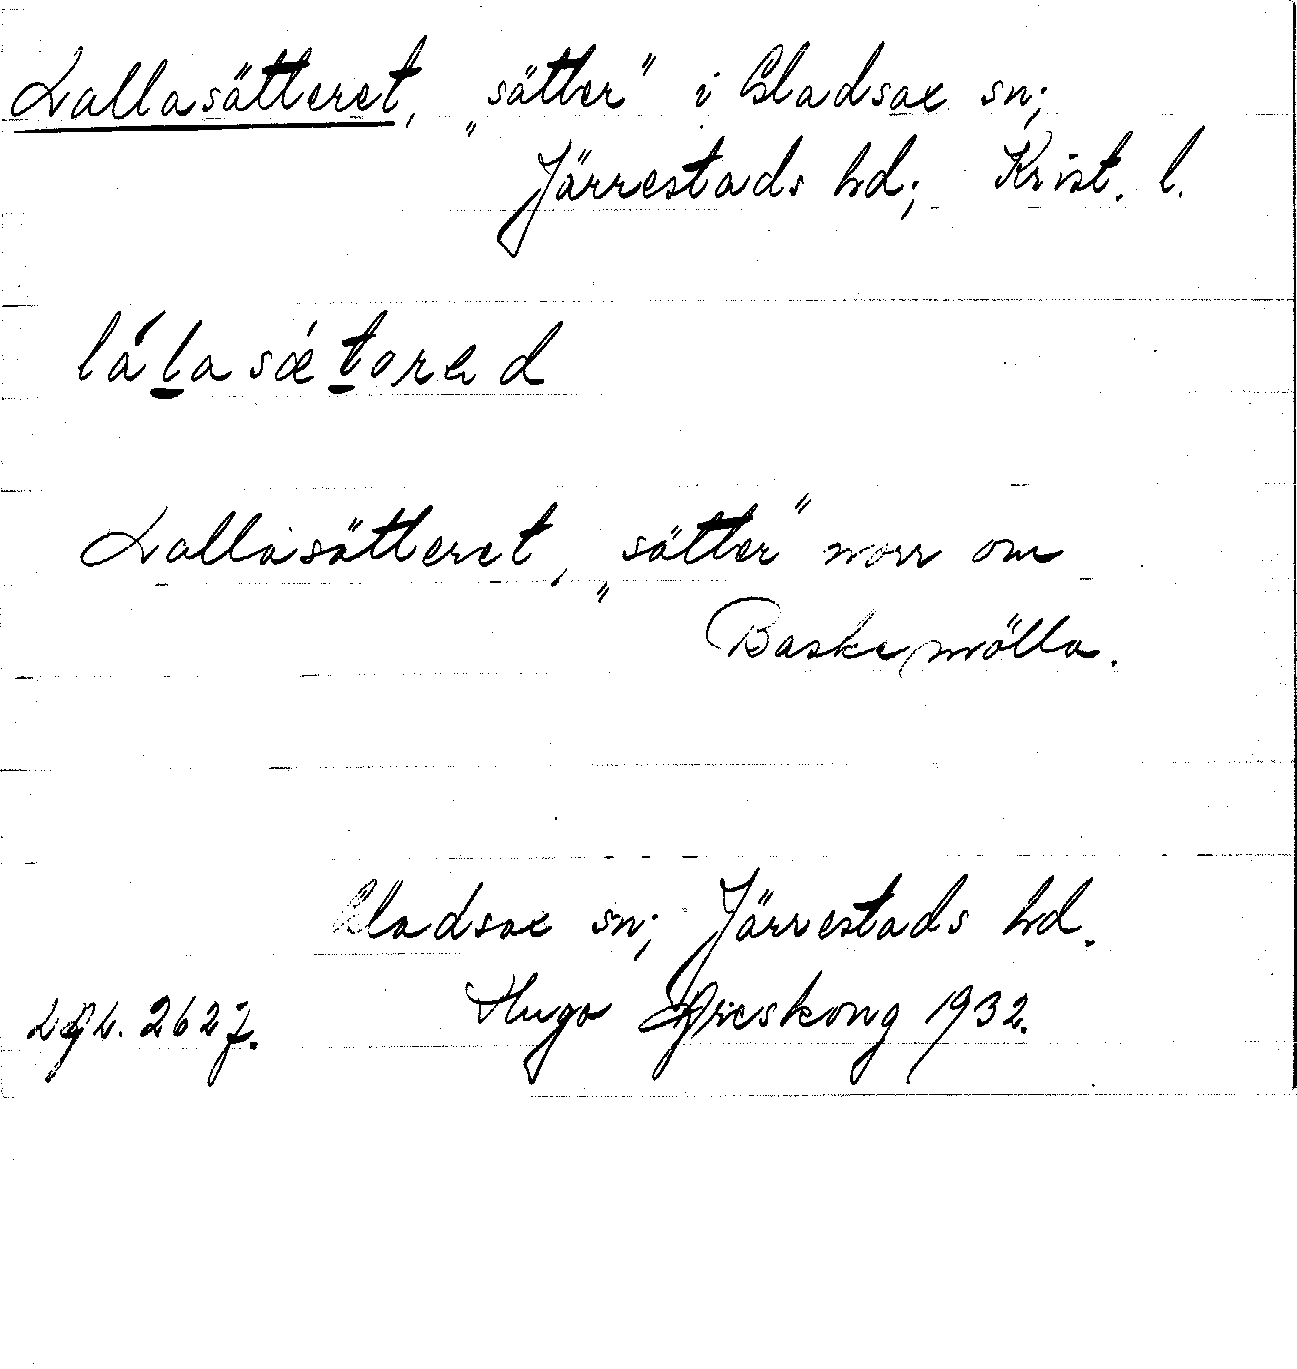 Lallasätteret, „sätter” i Gladsax sn;
Järrestads hd; Krist. l.
lálasǽtorad
Lallasätteret, „sätter” norr om
Baskemölla.
Gladsax sn; Järrestads hd.
Hugo Areskoug 1932.
2627.